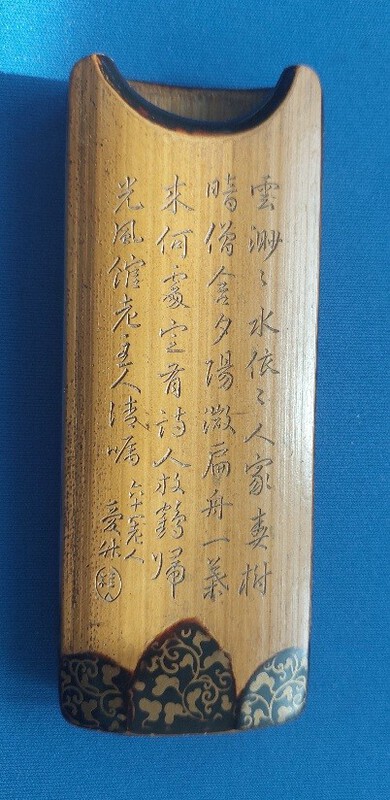 雲渺〻水依〻人家春樹
暗僧舍夕陽微扁舟一葉
来何處定有詩人放鶴歸
光風館老主人清嘱
六十老人
愛竹